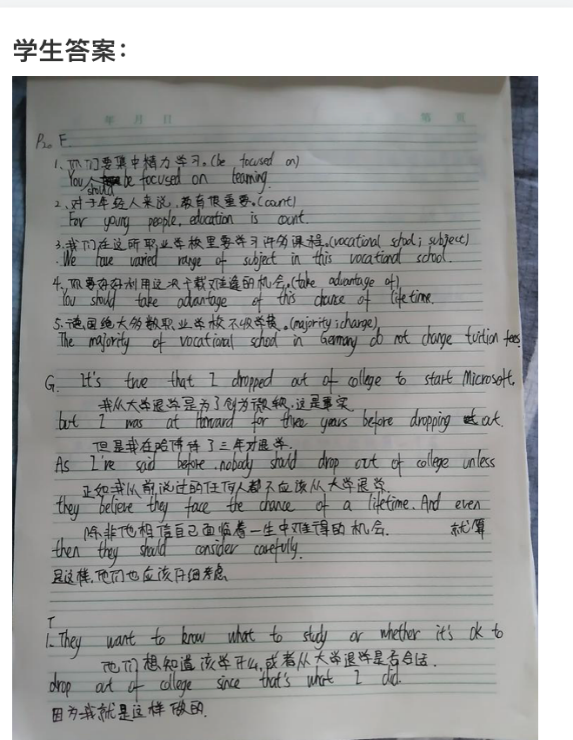 学生答案：
年 月 日 第 页
P20 F.
1、你们要集中精力学习。(be focused on)
You should be focused on learning.
2、对于年轻人来说,教育很重要。(count)
For young people, education is count.
3.我们在这所职业学校里要学习许多课程.(vocational school; subject)
We have varied range of subject in this vocational school.
4、你要好好利用这次千载难逢的机会.(take advantage of)
You should take advantage of this chance of lifetime.
5.德国绝大多数职业学校不收学费。(majority; charge)
The majority of vocational school in Germany do not charge tuition fees
G. It's true that I dropped out of college to start Microsoft,
我从大学退学是为了创办微软,这是事实
but I was at Harvard for three years before dropping out.
但是我在哈佛待了三年才退学.
As I've said before, nobody should drop out of college unless
正如我从前说过的任何人都不应该从大学退学
they believe they face the chance of a lifetime. And even
除非他相信自己面临着一生中难得的机会. 就算
then they should consider carefully.
是这样,他们也应该仔细考虑
I
1. They want to know what to study or whether it's ok to
他们想知道该学什么,或者从大学退学是否合适.
drop out of college since that's what I did.
因为我就是这样做的.